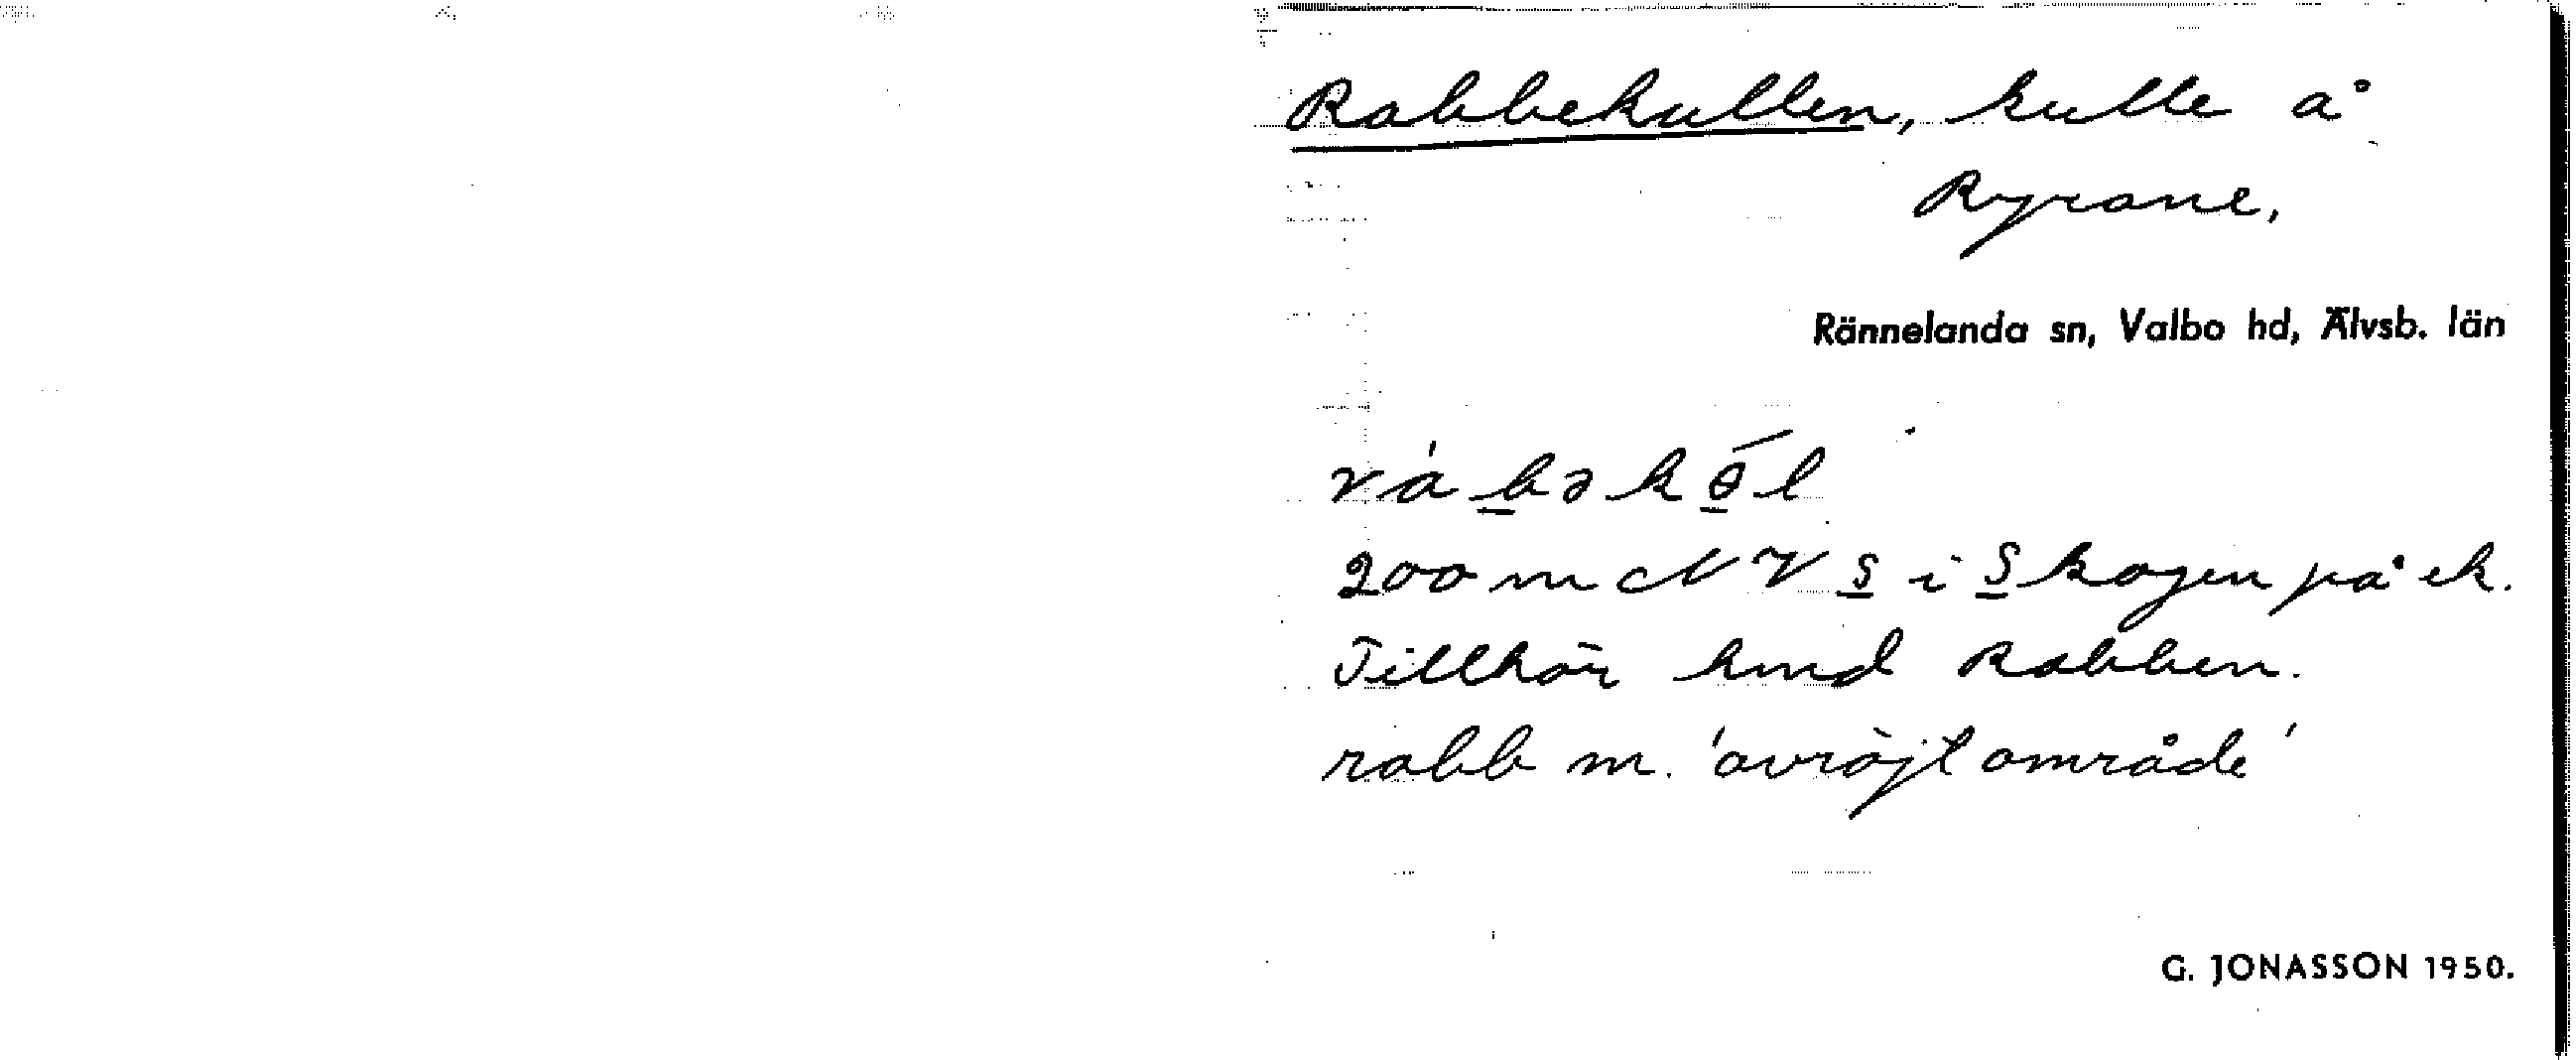 Rabbekullen, kulle å
Ryrane,
Rännelanda sn, Valbo hd, Älvsb. län
ràbəkɵ́l
200 m NV s i Skogen på ek.
Tillhör hmd Rabben.
rabb m. 'avröjt område'
G. JONASSON 1950.